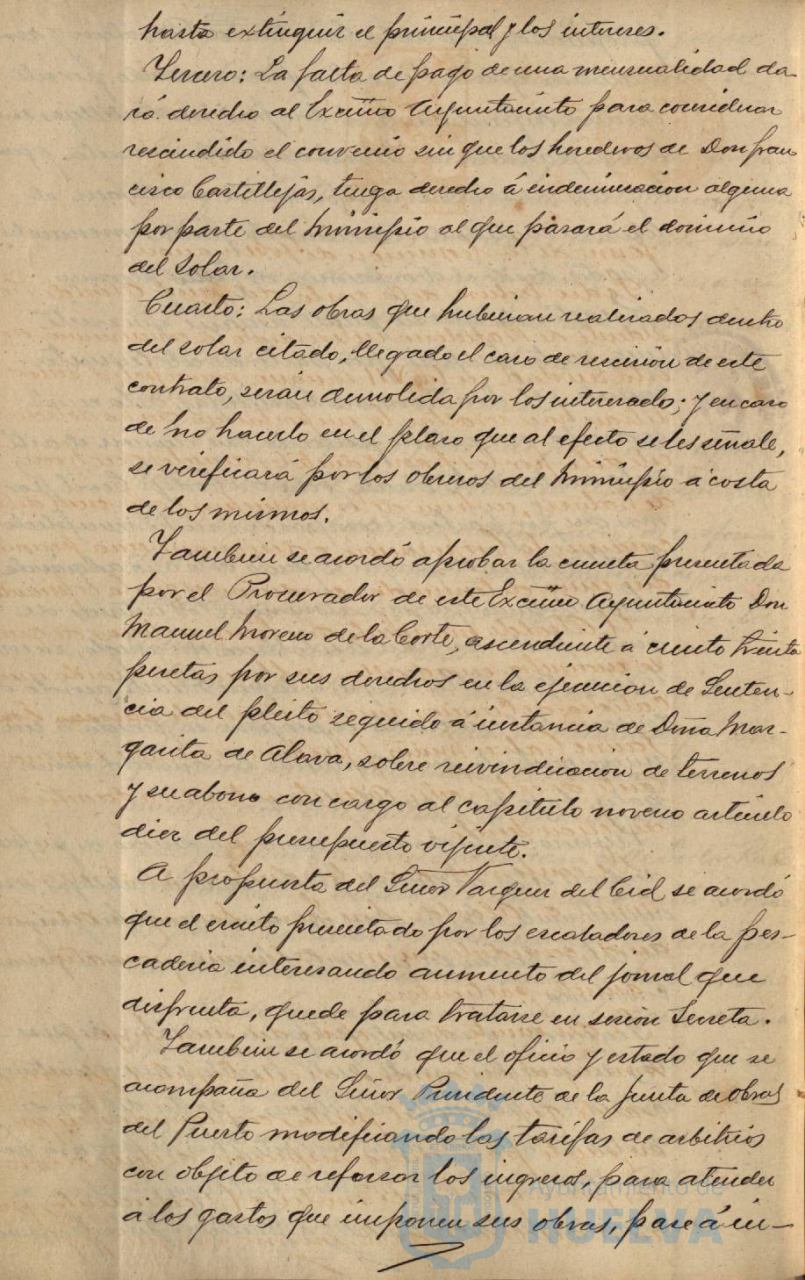 hasta extinguir el principal y los intereses.
Tercero: La falta de pago de una mensualidad da-
rá derecho al Excmo Ayuntamiento para considerar
rescindido el convenio sin que los herederos de Don Fran
cisco Castillejas, tenga derecho á indemnizacion alguna
por parte del Municipio al que pasará el dominio
del Solar.
Cuarto: Las obras que hubieran realizados dentro
del solar citado, llegado el caso de rescisión de este
contrato, serán demolida por los interesado; y en caso
de no hacerlo en el plazo que al efecto se les señale,
se verificará por los obreros del Municipio á costa
de los mismos.
Tambien se acordó aprobar la cuenta presentada
por el Procurador de este Excmo Ayuntamiento Don
Manuel Moreno de la Corte, ascendiente á ciento treinta
pesetas por sus derechos en la ejecucion de Senten-
cia del pleito seguido á instancia de Doña Mar-
garita de Alava, sobre reivindicacion de terrenos
y su abono con cargo al capitulo noveno articulo
diez del presupuesto vijente.
A propuesta del Señor Vazquez del Cid se acordó
que el escrito presentado por los escaladores de la pes-
caderia interesando aumento del jornal que
disfruta, quede para tratarse en sesión Secreta.
Tambien se acordó que el oficio y estado que se
acompaña del Señor Presidente de la Junta de obras
del Puerto modificando las tarifas de arbitrios
con objeto de reforzar los ingresos, para atender
á los gastos que imponen sus obras, pase á in-
Ayuntamiento de
HUELVA